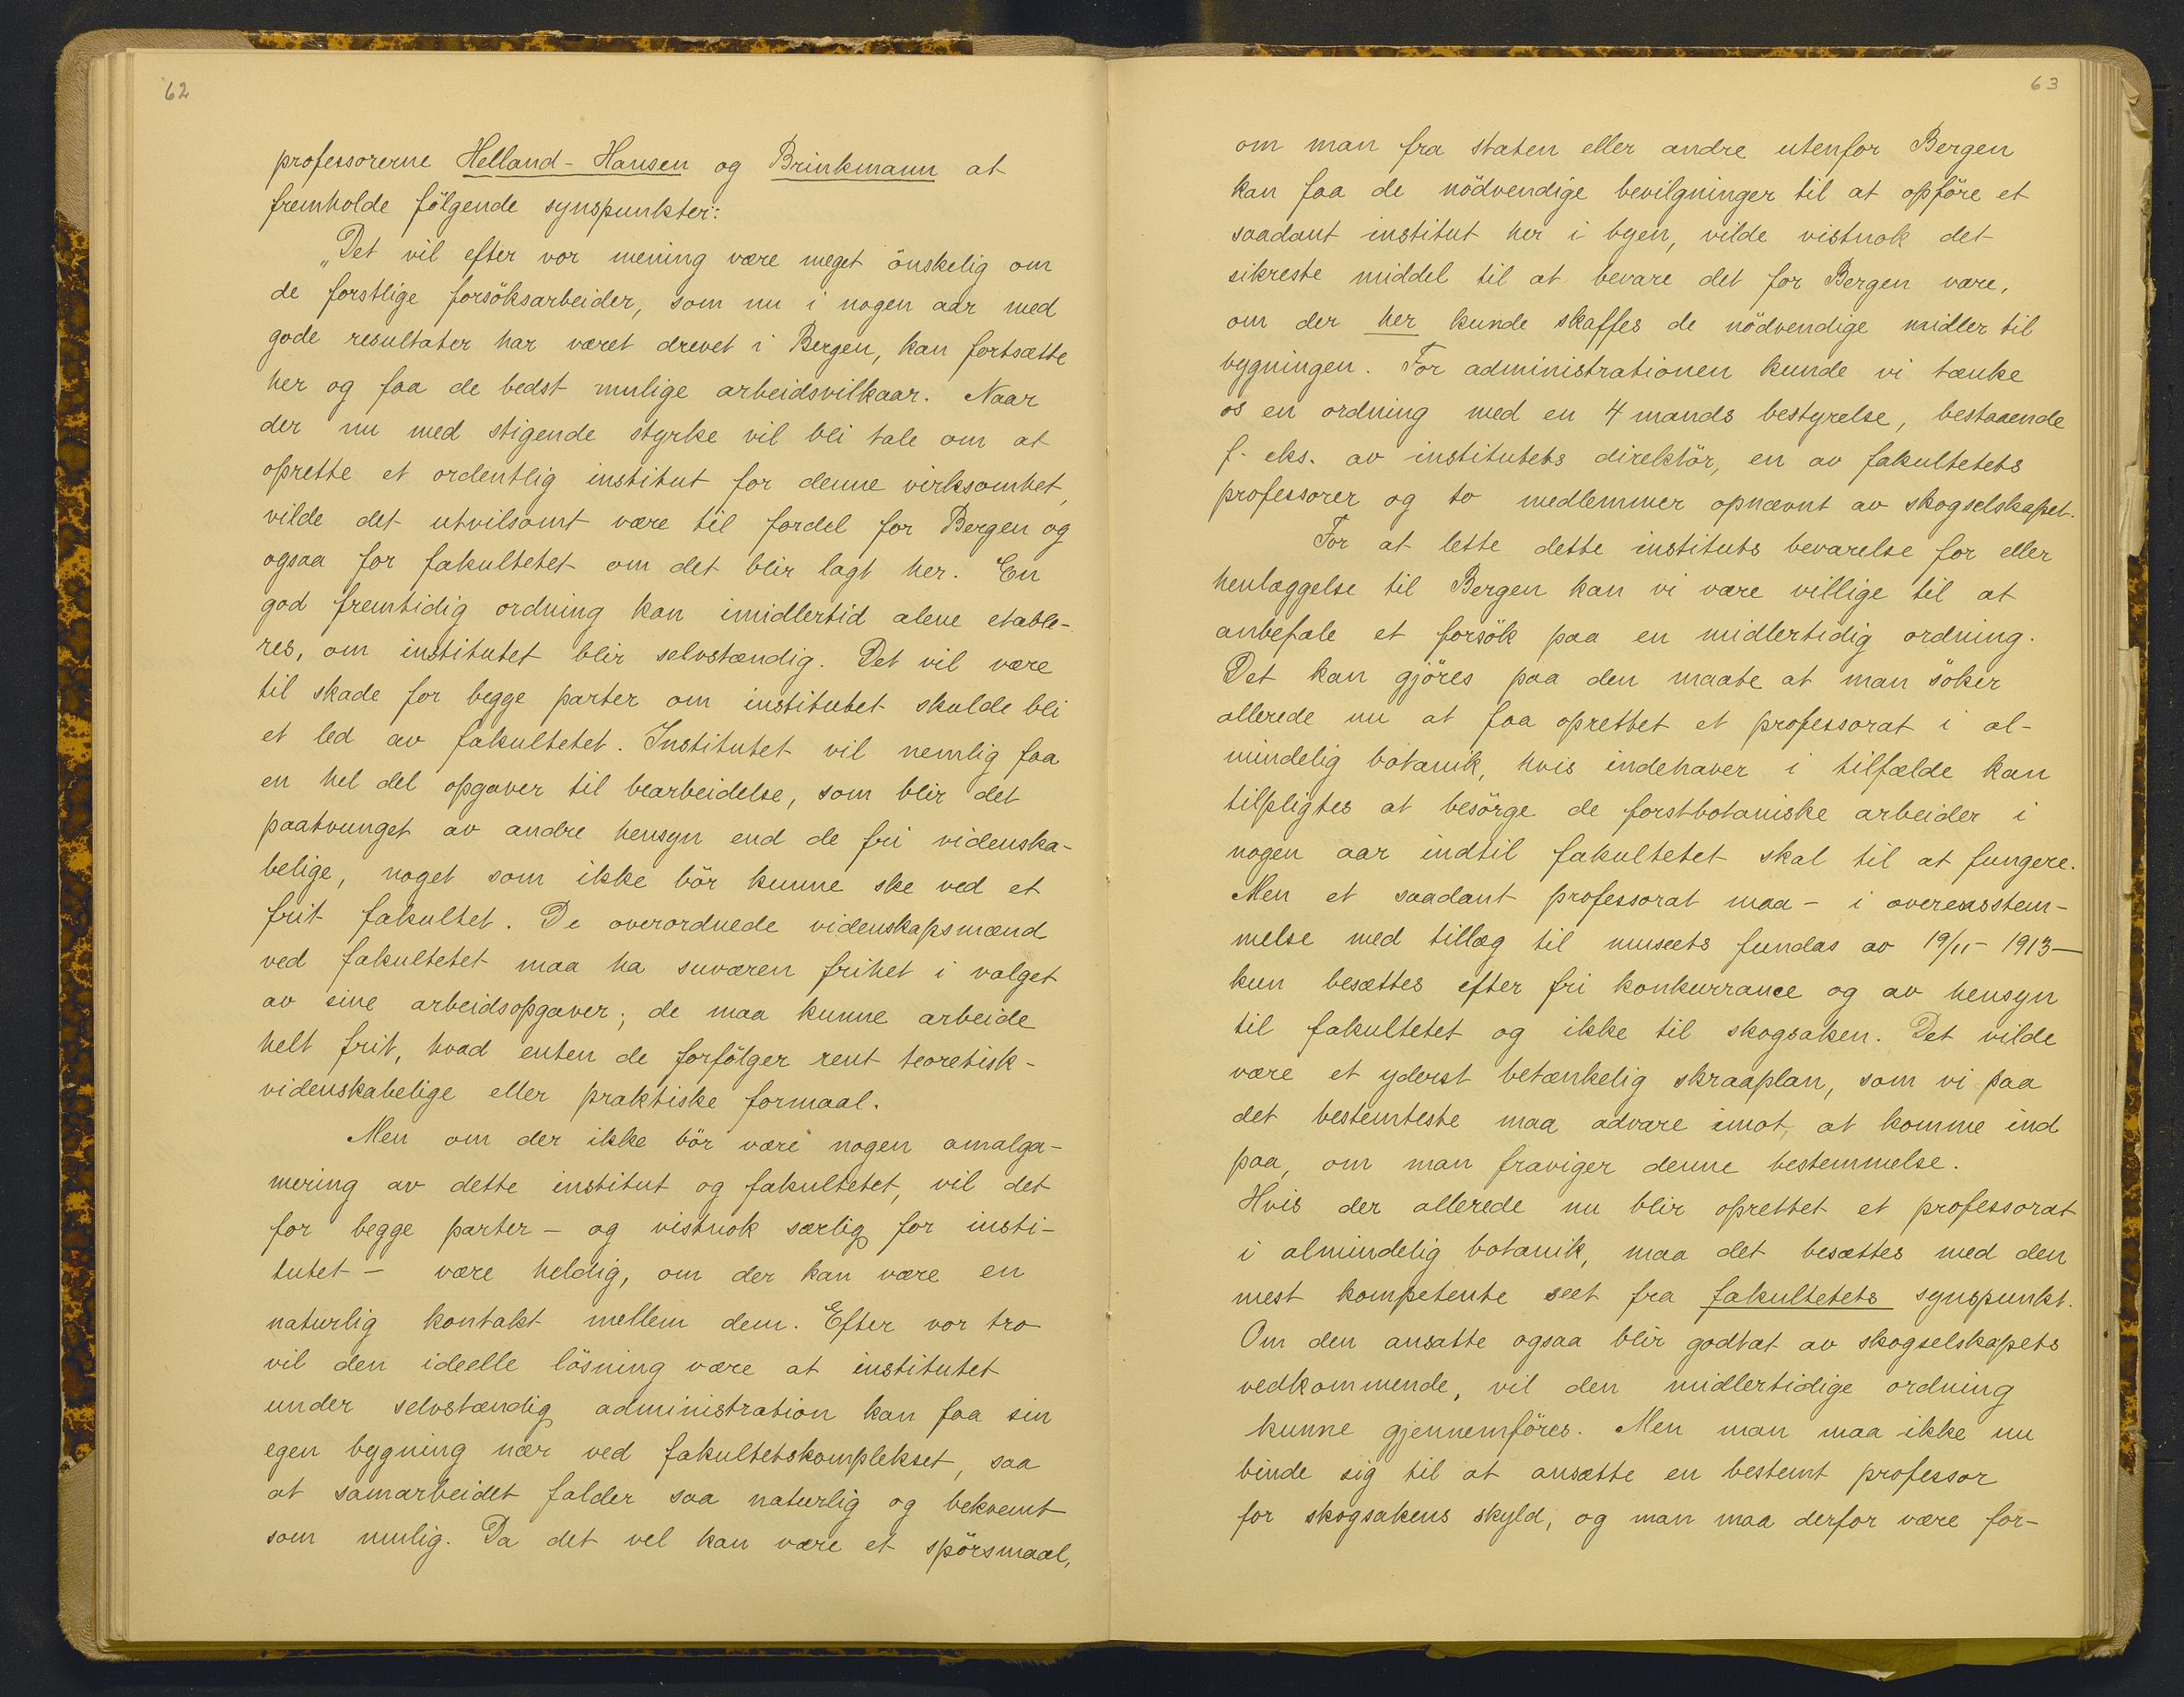 62
professorerne Helland-Hansen og Brinkmann at
fremholde fölgende synspunkter:
„Det vil efter vor mening være meget önskelig om
de forstlige forsöksarbeider, som nu i nogen aar med
gode resultater har været drevet i Bergen, kan fortsætte
her og faa de bedst mulige arbeidsvilkaar. Naar
der nu med stigende styrke vil bli tale om at
oprette et ordentlig institut for denne virksomhet,
vilde det utvilsomt være til fordel for Bergen og
ogsaa for fakultetet om det blir lagt her. En
god fremtidig ordning kan imidlertid alene etable-
res, om institutet blir selvstændig. Det vil være
til skade for begge parter om institutet skulde bli
et led av fakultetet. Institutet vil nemlig faa
en hel del opgaver til bearbeidelse, som blir det
paatvunget av andre hensyn end de fri videnska-
belige, noget som ikke bör kunne ske ved et
frit fakultet. De overordnede videnskapsmænd
ved fakultetet maa ha suveræn frihet i valget
av sine arbeidsopgaver; de maa kunne arbeide
helt frit, hvad enten de forfölger rent teoretisk-
videnskabelige eller praktiske formaal.
Men om der ikke bör være nogen amalga-
mering av dette institut og fakultetet, vil det
for begge parter – og vistnok særlig for insti-
tutet – være heldig, om der kan være en
naturlig kontakt mellem dem. Efter vor tro
vil den ideelle lösning være at institutet
under selvstændig administration kan faa sin
egen bygning nær ved fakultetskomplekset, saa
at samarbeidet falder saa naturlig og bekvemt
som mulig. Da det vel kan være et spörsmaal,
63
om man fra staten eller andre utenfor Bergen
kan faa de nödvendige bevilgninger til at opföre et
saadant institut her i byen, vilde vistnok det
sikreste middel til at bevare det for Bergen være,
om der her kunde skaffes de nödvendige midler til
bygningen. For administrationen kunde vi tænke
os en ordning med en 4 mands bestyrelse, bestaaende
f. eks. av institutets direktör, en av fakultetets
professorer og to medlemmer opnævnt av skogselskapet.
For at lette dette instituts bevarelse for eller
henlæggelse til Bergen kan vi være villige til at
anbefale et forsök paa en midlertidig ordning.
Det kan gjöres paa den maate at man söker
allerede nu at faa oprettet et professorat i al-
mindelig botanik, hvis indehaver i tilfælde kan
tilpligtes at besörge de forstbotaniske arbeider i
nogen aar indtil fakultetet skal til at fungere.
Men et saadant professorat maa – i overensstem-
melse med tillæg til museets fundas av 19/11 – 1913 –
kun besættes efter fri konkurrance og av hensyn
til fakultetet og ikke til skogsaken. Det vilde
være et yderst betænkelig skraaplan, som vi paa
det bestemteste maa advare imot, at komme ind
paa, om man fraviger denne bestemmelse.
Hvis der allerede nu blir oprettet et professorat
i almindelig botanik, maa det besættes med den
mest kompetente seet fra fakultetets synspunkt.
Om den ansatte ogsaa blir godtat av skogselskapets
vedkommende, vil den midlertidige ordning
kunne gjennemföres. Men man maa ikke nu
binde sig til at ansætte en bestemt professor
for skogsakens skyld, og man maa derfor være for-